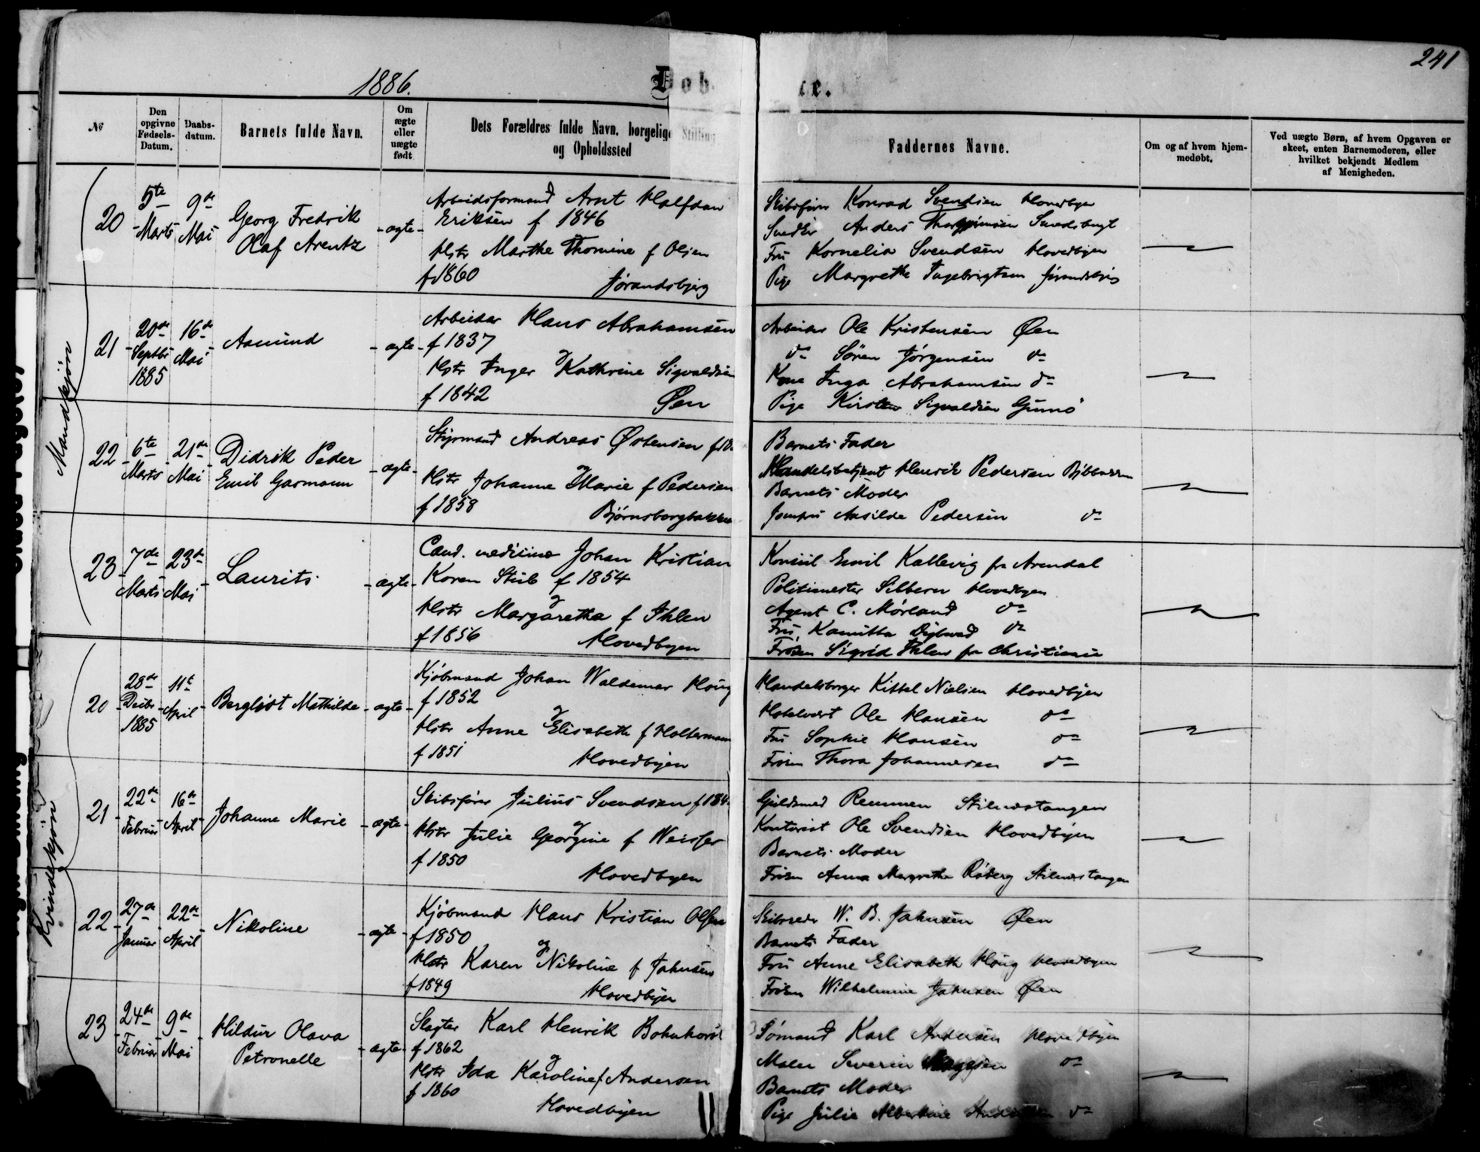 241
1886.
Døb
te.
№
Den opgivne Fødsels-Datum.
Daabs-datum.
Barnets fulde Navn.
Om ægte eller uægte født
Dets Forældres fulde Navn, borgelige Stilling
og Opholdssted
Faddernes Navne.
Om og af hvem hjem-
medøbt.
Ved uægte Børn, af hvem Opgaven er
skeet, enten Barnemoderen, eller
hvilket bekjendt Medlem
af Menigheden.
Mandkjøn
20
5te Marts
9de Mai
Georg Fredrik
Olaf Arentz
ægte
Arbeidsformand Arnt Halfdan
Eriksen f 1846
Hstr Marthe Thomine f Olsen
f 1860 Jørandsbjerg
Skibsfører Konrad Svendsen Hovedbyen
Anders
Fru Kornelia Svendsen Hovedbyen
Pige Margrethe Ingebrigtsen
21
20de Septbr 1885
16de Mai
Aamund
ægte
Arbeider Hans Abrahamsen
f 1837
Hstr Inger Kathrine Sigvaldsen
f 1842 Øen
Arbeider Ole Kristensen Øen
do Søren Jørgensen do
Kone Inga Abrahamsen do
Pige Kirsten Sigvaldsen
22
6te Marts
21de Mai
Didrik Peder
Emil Garmann
ægte
Styrmand Andreas Østensen
Hstr Johanne Marie f Pedersen
f 1858 Bjørnsborgbakken
Barnets Fader
Handelsbetjent Henrik Pedersen
Barnets Moder
Jomfru Pedersen do
23
7de Marts
23de Mai
Laurits
ægte
Cand. medicinæ Johan Kristian
Koren Stub f 1854
Hstr Margaretha f Ihlen
f 1856 Hovedbyen
Konsul Emil Kallevig fr Arendal
Politimester Hovedbyen
Agent C. Mørland do
Fru Kamitta do
Frøken Sigrid Ihlen fr Christiania
Kvindekjøn
20
28de Decbr 1885
11te April
Bergliot Mathilde
ægte
Kjøbmand Johan Waldemar Houg
f 1852
Hstr Anne Elisabeth f Holterman
f 1851 Hovedbyen
Handelsborger Kittel Nielsen Hovedbyen
Hotelvert Ole Hansen do
Fru Sophie Hansen do
Frøken Thora Johannesen do
21
22de Februar
16de April
Johanne Marie
ægte
Skibsfører Julius Svendsen
Hstr Julie Georgine f Weisser
f 1850 Hovedbyen
Guldsmed Remmen Stilnæstangen
Kontorist Ole Svendsen Hovedbyen
Barnets Moder
Frøken Anna Margrethe Røberg Stilnæstangen
22
27de Januar
22de April
Nikoline
ægte
Kjøbmand Hans Kristian Olsen
f 1850
Hstr Karen Nikoline f Jahnsen
f 1849 Hovedbyen
Skibsreder W. B. Jahnsen Øen
Barnets Fader
Fru Anne Elisabeth Houg Hovedbyen
Frøken Wilhelmine Jahnsen Øen
23
24de Februar
9de Mai
Hildur Olava
Petronelle
ægte
Slagter Karl Henrik Bohnhorst
f 1862
Hstr Ida Karoline f Andersen
f 1860 Hovedbyen
Sømand Karl Andersen Hovedbyen
Maler Severin do
Barnets Moder
Pige Julie Albertine do